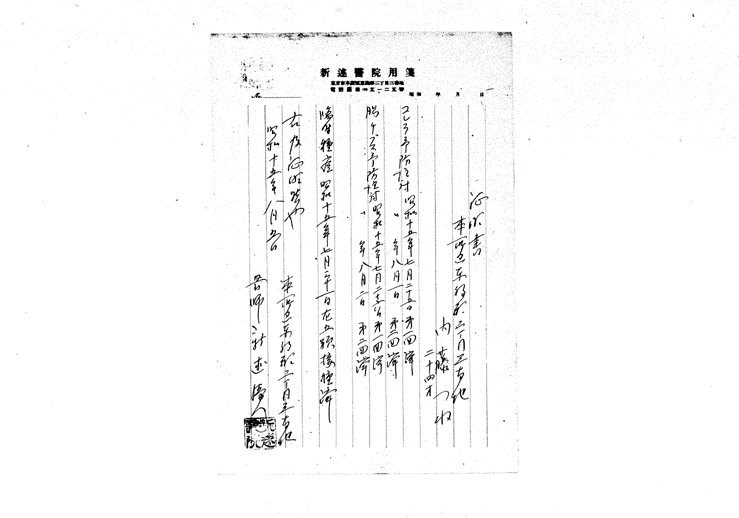 新達醫院用箋
東京市本所區東駒形二丁目三番地
電話墨田㈣五一二五番
昭和 年 月 日
証明書
本所区東駒形二丁目三番地
内藤つね
二十四才
コレラ予防注射 昭和十五年七月二十五日 第一回済
〃 年八月一日 第二回済
腸チブス予防注射 昭和十五年七月二十六日 第一回済
〃 年八月二日 第二回済
臨時種痘 昭和十五年七月二十一日左五顆接種済
右及証明候也
昭和十五年八月五日
本所区東駒形二丁目三番地
医師 新達